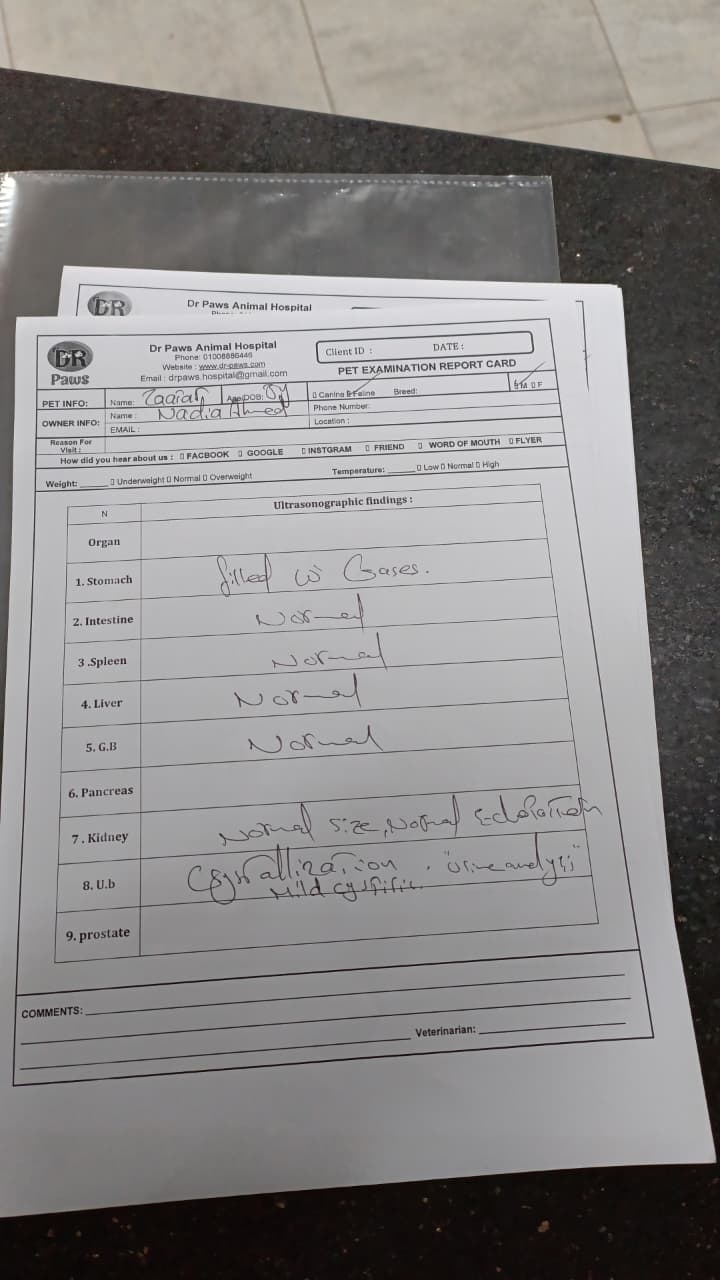 DR
Dr Paws Animal Hospital
DR
Paws
Dr Paws Animal Hospital
Phone: 01008886446
Website : www.dr-paws.com
Email : drpaws.hospital@gmail.com
Client ID : DATE :
PET EXAMINATION REPORT CARD
PET INFO: Name: Age/DOB: Canine Feline Breed: M F
OWNER INFO: Name : Nadia Ahmed Phone Number:
EMAIL : Location :
Reason For Visit :
How did you hear about us : FACBOOK GOOGLE INSTGRAM FRIEND WORD OF MOUTH FLYER
Weight: Underweight Normal Overweight Temperature: Low Normal High
N Ultrasonographic findings :
Organ
1. Stomach filled w Gases.
2. Intestine Normal
3 .Spleen Normal
4. Liver Normal
5. G.B Normal
6. Pancreas
7. Kidney Normal size, Normal
8. U.b Crystallization . "Urine analysis"
Mild cystitis.
9. prostate
COMMENTS:
Veterinarian: